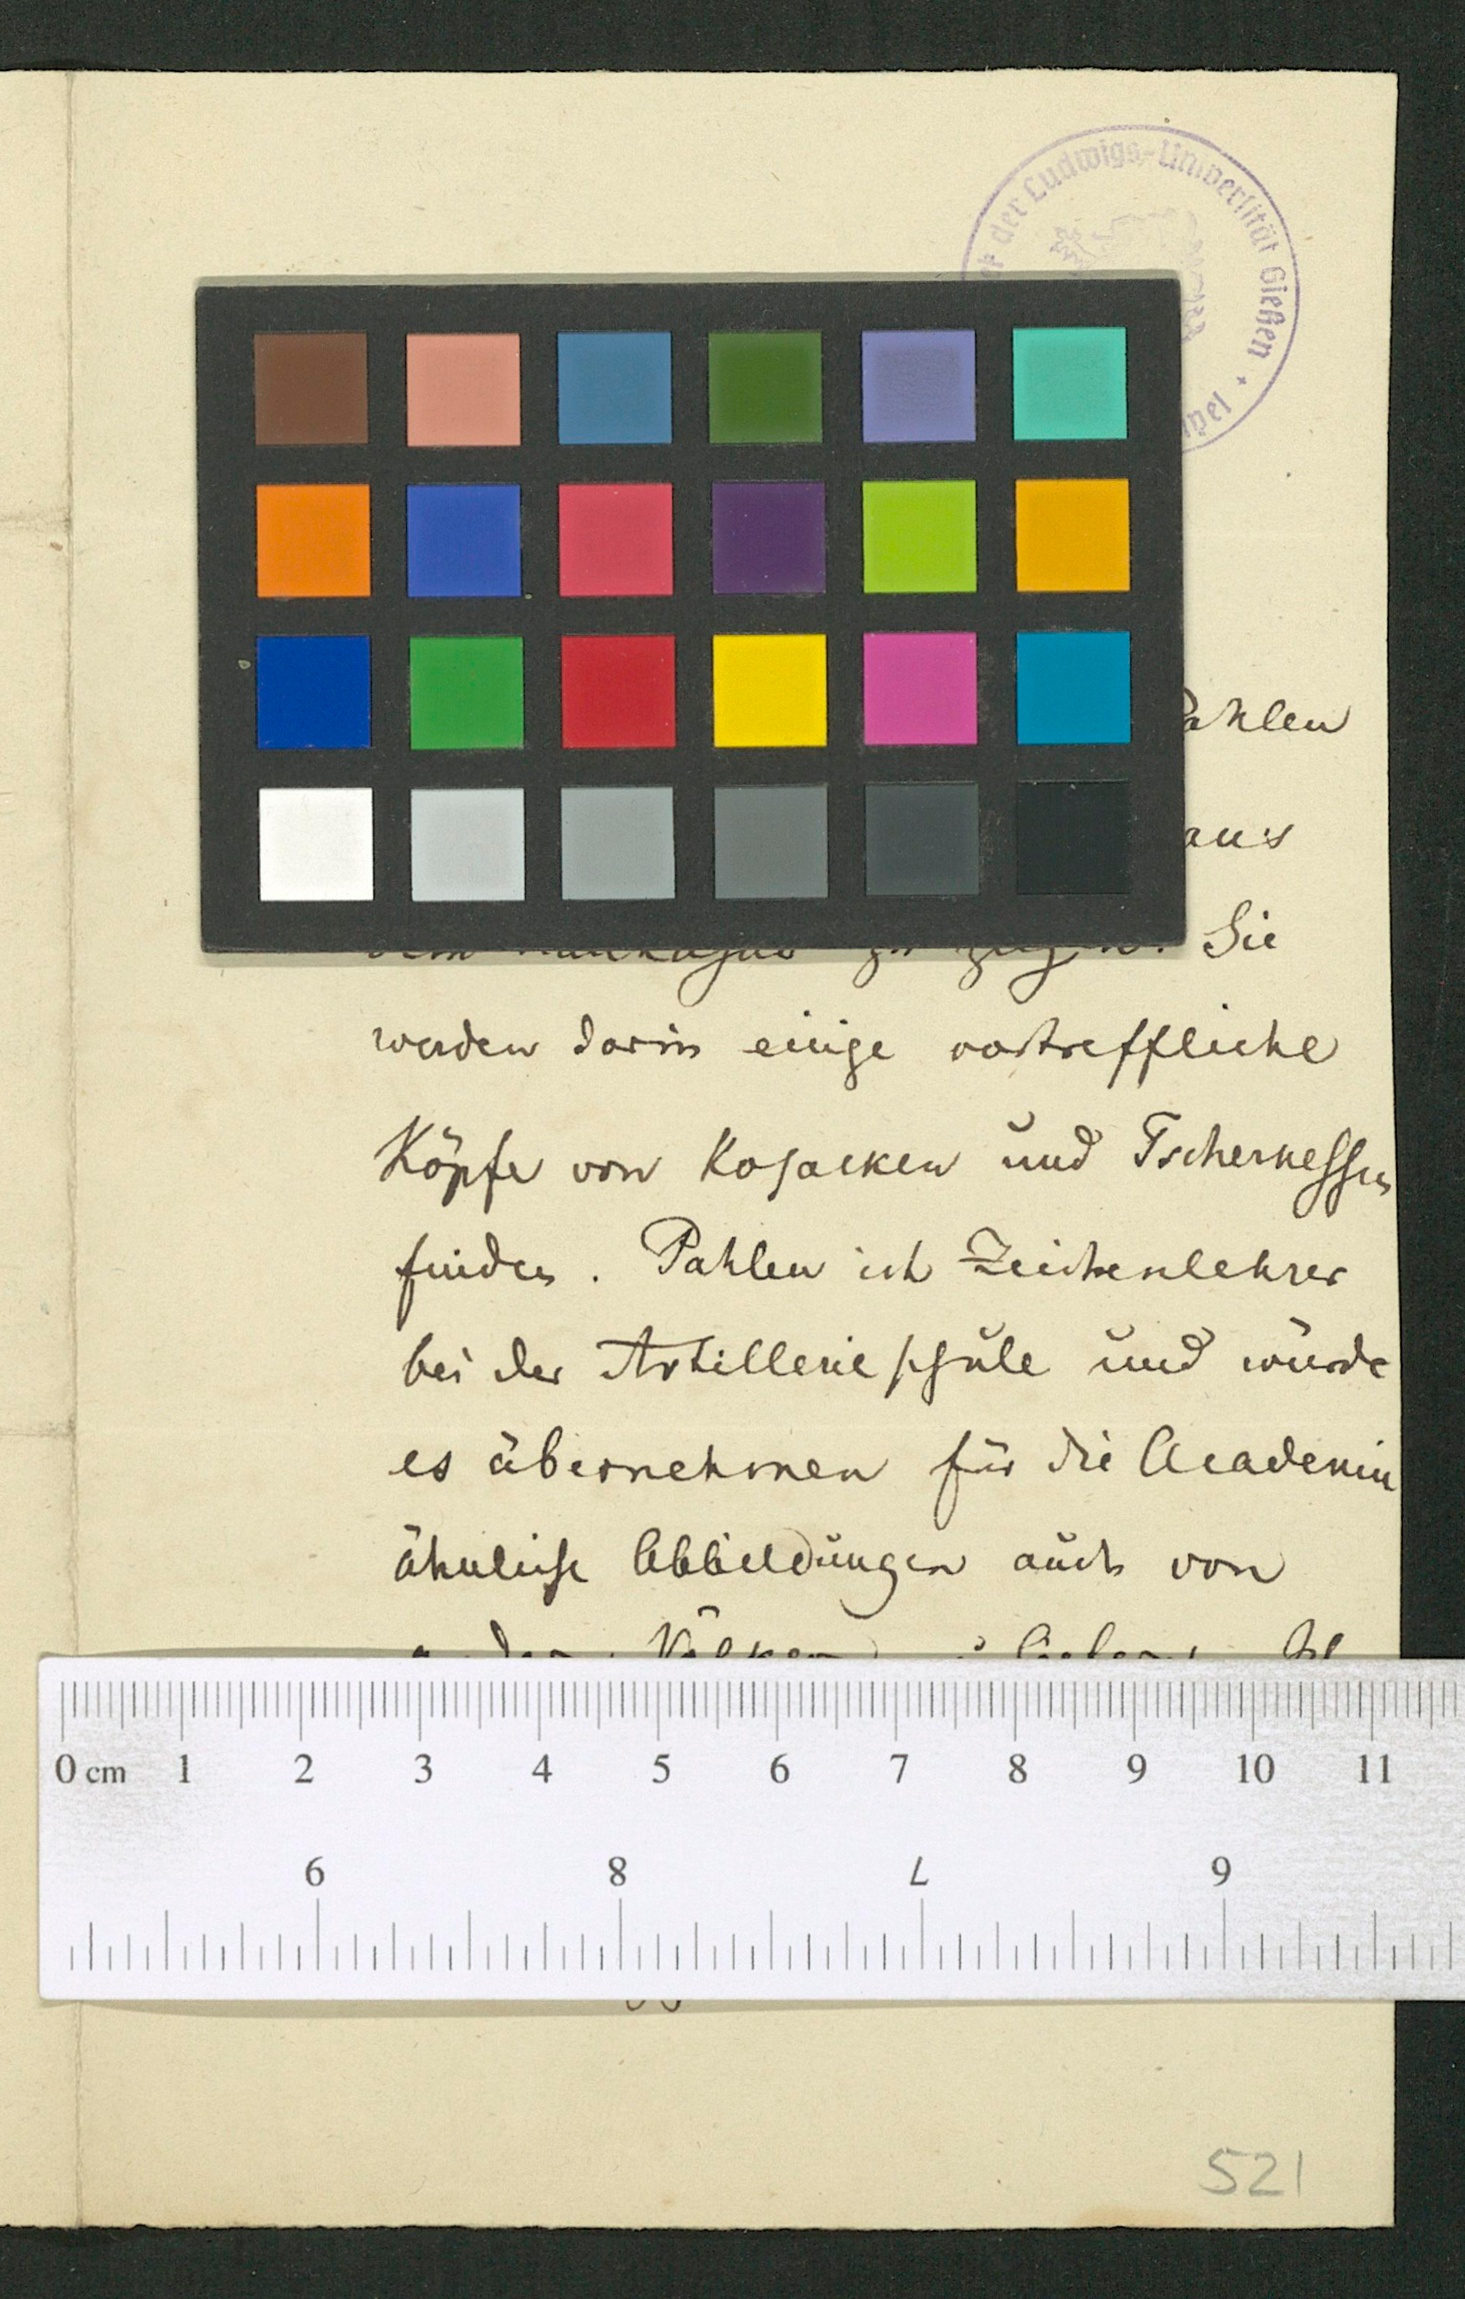 der Ludwigs-Universität Gießen
Pahlen
aus
dem Kaukasus zu zeigen. Sie
werden darin einige vortreffliche
Köpfe von Kosacken und Tscherkessen
finden. Pahlen ist Zeichenlehrer
bei der Artillerieschule und würde
es übernehmen für die Academie
ähnliche Abbildungen auch von
0 cm 1 2 3 4 5 6 7 8 9 10 11
9 8 7 6
521